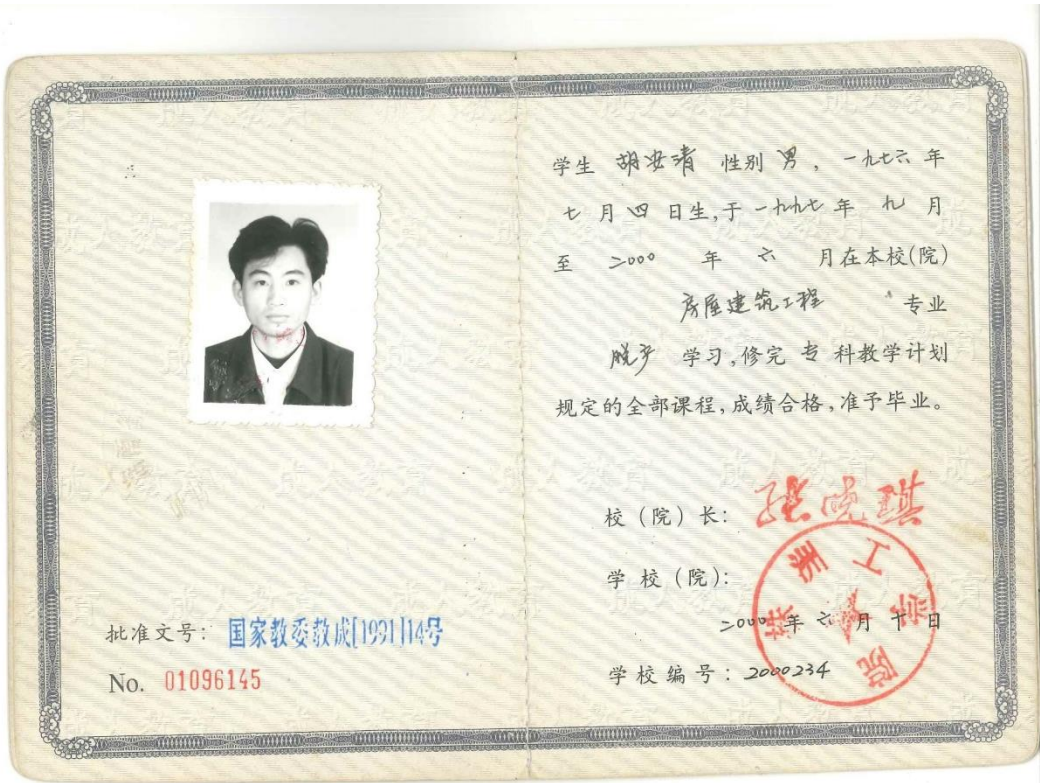 批准文号: 国家教委教成[1991]14号
No. 01096145
学生 胡安清 性别 男, 一九七六 年
七 月 四 日生,于 一九九七 年 九 月
至 二000 年 六 月在本校(院)
房屋建筑工程 专业
脱产 学习,修完 专 科教学计划
规定的全部课程,成绩合格,准予毕业。
校(院)长: 张晓琪
学校(院):
二000 年 六 月 十 日
学校编号: 2000234
工学院
成人教育